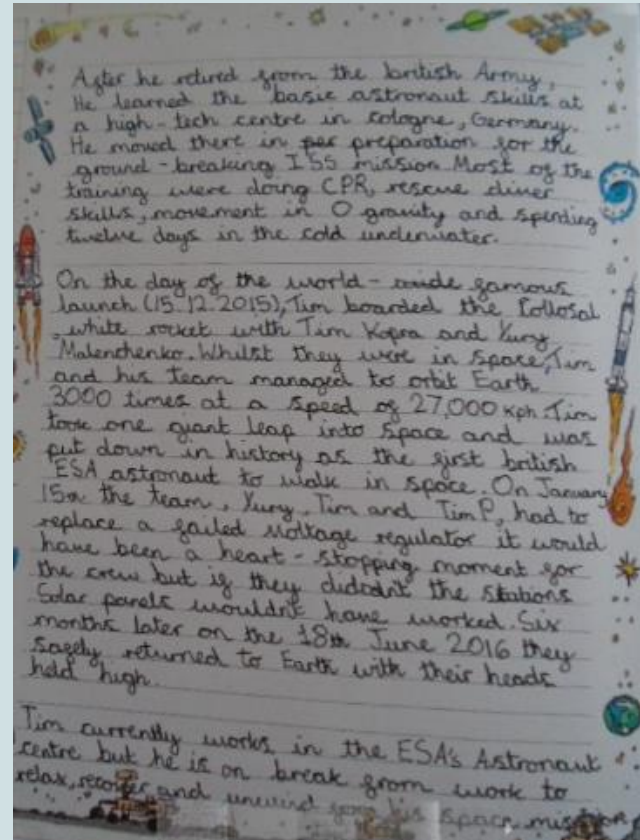 After he retired from the british Army,
He learned the basic astronaut skills at
a high-tech centre in cologne, Germany.
He moved there in per preparation for the
ground-breaking ISS mission Most of the
training were doing CPR, rescue diver
skills, movement in 0 gravity and spending
twelve days in the cold underwater.
On the day of the world-wide famous
launch (15.12.2015), Tim boarded the Collosal
white rocket with Tim Kopra and Yury
Malenchenko. Whilst they were in space, Tim
and his team managed to orbit Earth
3000 times at a speed of 27,000 kph. Tim
took one giant leap into space and was
put down in history as the first british
ESA astronaut to walk in space. On January
15th the team, Yury, Tim and Tim P, had to
replace a failed voltage regulator it would
have been a heart-stopping moment for
the crew but if they didodn't the stations
Solar panels wouldn't have worked. Six
months later on the 18th June 2016 they
safely returned to Earth with their heads
held high.
Tim currently works in the ESA's Astronaut
centre but he is on break from work to
relax, recover and unwind his space mission